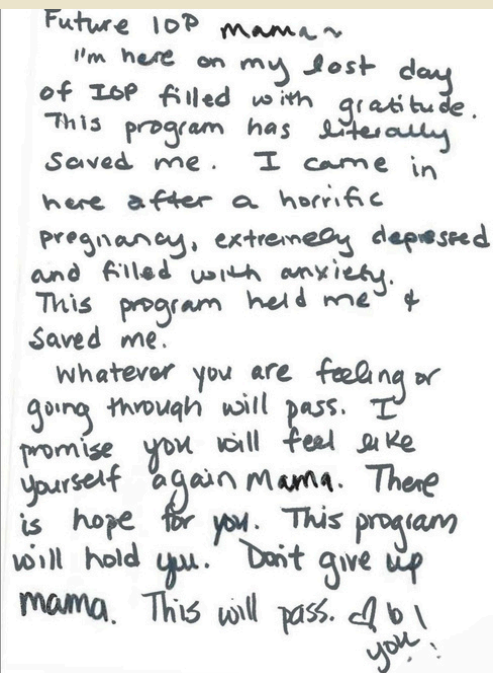 Future IOP mama~
I'm here on my last day
of IOP filled with gratitude.
This program has literally
saved me. I came in
here after a horrific
pregnancy, extremely depressed
and filled with anxiety.
This program held me &
saved me.
Whatever you are feeling or
going through will pass. I
promise you will feel like
yourself again mama. There
is hope for you. This program
will hold you. Don't give up
mama. This will pass.
you!